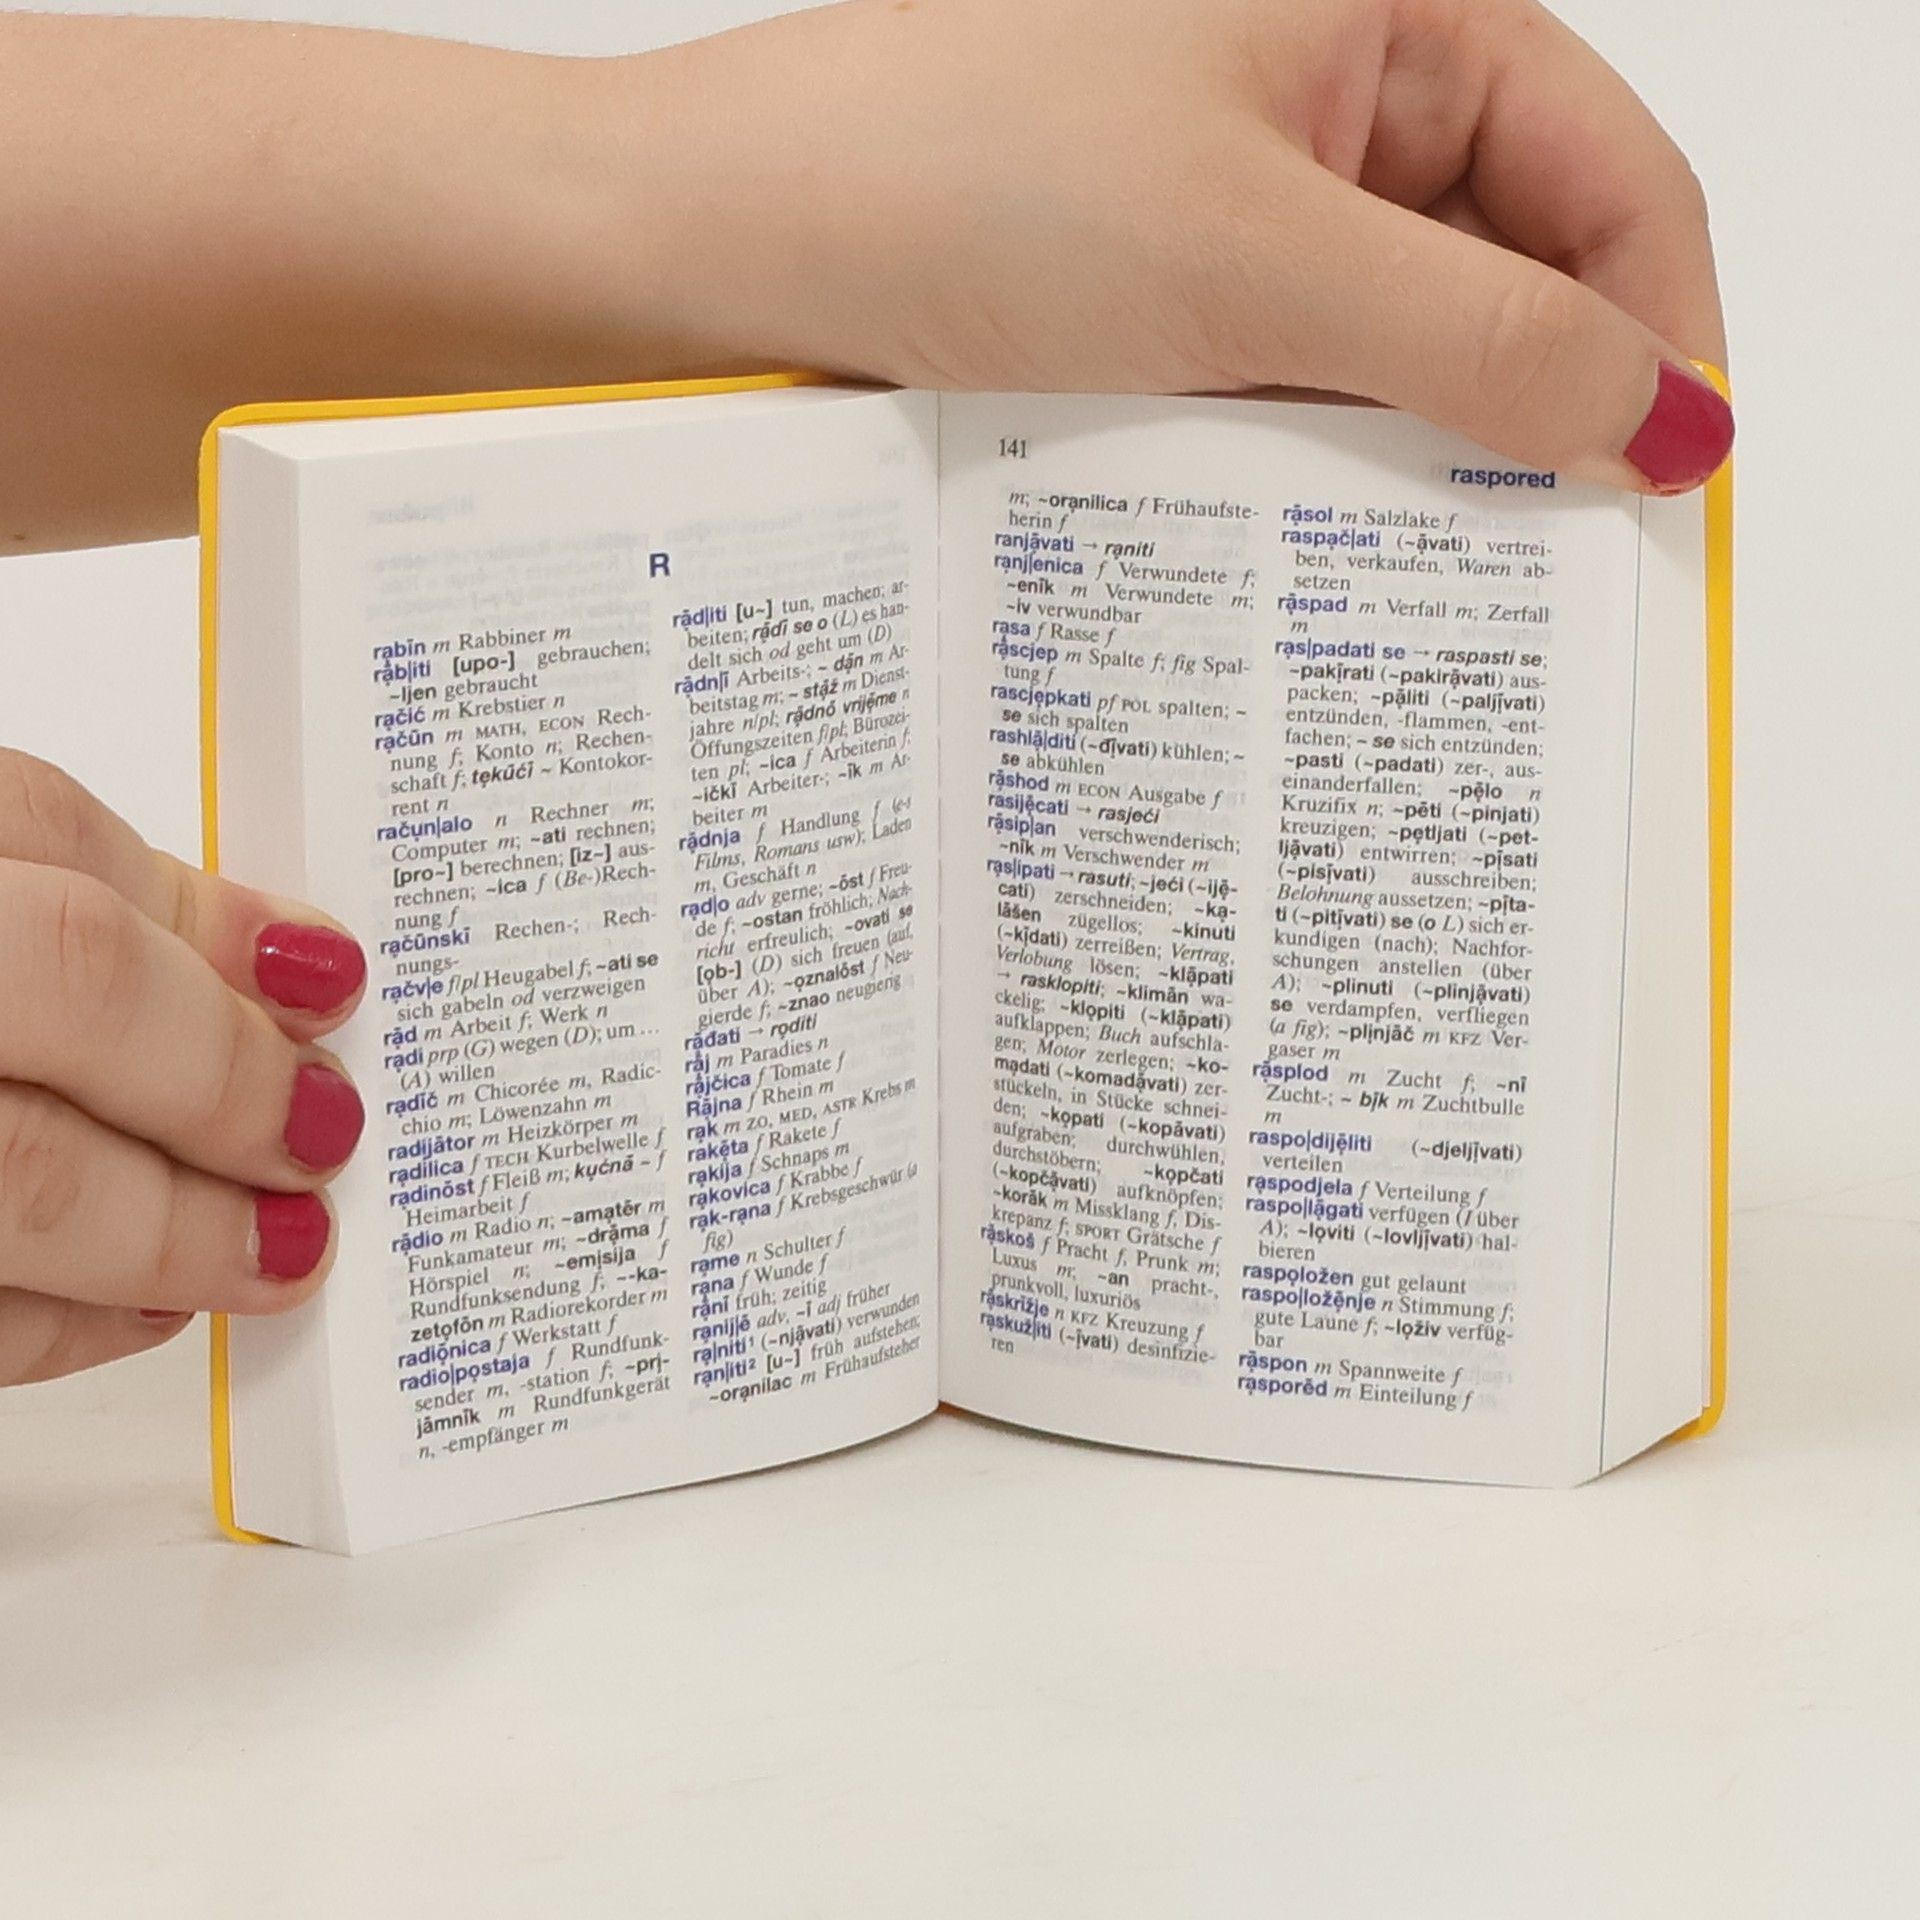 R
rabīn m Rabbiner m
rāb|iti [upo-] gebrauchen;
~ljen gebraucht
račić m Krebstier n
račūn m MATH, ECON Rech-
nung f; Konto n; Rechen-
schaft f; tekūćī ~ Kontokor-
rent n
račun|alo n Rechner m;
Computer m; ~ati rechnen;
[pro~] berechnen; [iz~] aus-
rechnen; ~ica f (Be-)Rech-
nung f
račūnskī Rechen-; Rech-
nungs-
račv|e f/pl Heugabel f; ~ati se
sich gabeln od verzweigen
rād m Arbeit f; Werk n
radi prp (G) wegen (D); um ...
(A) willen
radīč m Chicorée m, Radic-
chio m; Löwenzahn m
radijātor m Heizkörper m
radilica f TECH Kurbelwelle f
radinōst f Fleiß m; kućnā ~ f
Heimarbeit f
rādio m Radio n; ~amatēr m
Funkamateur m; ~drāma f
Hörspiel n; ~emisija f
Rundfunksendung f; ~-ka-
zetofōn m Radiorekorder m
radiōnica f Werkstatt f
radio|postaja f Rundfunk-
sender m, -station f; ~pri-
jāmnīk m Rundfunkgerät
n, -empfänger m
rād|iti [u~] tun, machen; ar-
beiten; rādī se o (L) es han-
delt sich od geht um (D)
rādn|ī Arbeits-; ~ dān m Ar-
beitstag m; ~ stāž m Dienst-
jahre n/pl; rādnō vrijēme n
Öffnungszeiten f/pl; Bürozei-
ten pl; ~ica f Arbeiterin f;
~ičkī Arbeiter-; ~īk m Ar-
beiter m
rādnja f Handlung f (e-s
Films, Romans usw); Laden
m, Geschäft n
rad|o adv gerne; ~ōst f Freu-
de f; ~ostan fröhlich; Nach-
richt erfreulich; ~ovati se
[ob-] (D) sich freuen (auf,
über A); ~oznalōst f Neu-
gierde f; ~znao neugierig
rāđati → roditi
rāj m Paradies n
rājčica f Tomate f
Rājna f Rhein m
rak m ZO, MED, ASTR Krebs m
rakēta f Rakete f
rakija f Schnaps m
rakovica f Krabbe f
rak-rana f Krebsgeschwür (a
fig)
rame n Schulter f
rana f Wunde f
rānī früh; zeitig
ranij|ē adv, ~ī adj früher
ra|niti¹ (~njāvati) verwunden
ran|iti² [u~] früh aufstehen;
~oranilac m Frühaufsteher
141
raspored
m; ~oranilica f Frühaufste-
herin f
ranjāvati → raniti
ranj|enica f Verwundete f;
~enīk m Verwundete m;
~iv verwundbar
rasa f Rasse f
rāscjep m Spalte f; fig Spal-
tung f
rascjepkati pf POL spalten; ~
se sich spalten
rashlā|diti (~dīvati) kühlen; ~
se abkühlen
rāshod m ECON Ausgabe f
rasijēcati → rasjeći
rāsip|an verschwenderisch;
~nīk m Verschwender m
ras|ipati → rasuti; ~jeći (~ijē-
cati) zerschneiden; ~ka-
lāšen zügellos; ~kinuti
(~kīdati) zerreißen; Vertrag,
Verlobung lösen; ~klāpati
→ rasklopiti; ~klimān wa-
ckelig; ~klopiti (~klāpati)
aufklappen; Buch aufschla-
gen; Motor zerlegen; ~ko-
madati (~komadāvati) zer-
stückeln, in Stücke schnei-
den; ~kopati (~kopāvati)
aufgraben; durchwühlen,
durchstöbern; ~kopčati
(~kopčāvati) aufknöpfen;
~korāk m Missklang f, Dis-
krepanz f; SPORT Grätsche f
rāskoš f Pracht f, Prunk m;
Luxus m; ~an pracht-,
prunkvoll, luxuriös
rāskrižje n KFZ Kreuzung f
raskuž|iti (~īvati) desinfizie-
ren
rāsol m Salzlake f
raspač|ati (~āvati) vertrei-
ben, verkaufen, Waren ab-
setzen
rāspad m Verfall m; Zerfall
m
ras|padati se → raspasti se;
~pakīrati (~pakirāvati) aus-
packen; ~pāliti (~paljīvati)
entzünden, -flammen, -ent-
fachen; ~ se sich entzünden;
~pasti (~padati) zer-, aus-
einanderfallen; ~pēlo n
Kruzifix n; ~pēti (~pinjati)
kreuzigen; ~petljati (~pet-
ljāvati) entwirren; ~pīsati
(~pisīvati) ausschreiben;
Belohnung aussetzen; ~pīta-
ti (~pitīvati) se (o L) sich er-
kundigen (nach); Nachfor-
schungen anstellen (über
A); ~plinuti (~plinjāvati)
se verdampfen, verfliegen
(a fig); ~plinjāč m KFZ Ver-
gaser m
rāsplod m Zucht f; ~nī
Zucht-; ~ bīk m Zuchtbulle
m
raspo|dijēliti (~djeljīvati)
verteilen
raspodjela f Verteilung f
raspo|lāgati verfügen (I über
A); ~loviti (~lovljīvati) hal-
bieren
raspoložen gut gelaunt
raspo|ložēnje n Stimmung f;
gute Laune f; ~loživ verfüg-
bar
rāspon m Spannweite f
rāsporēd m Einteilung f